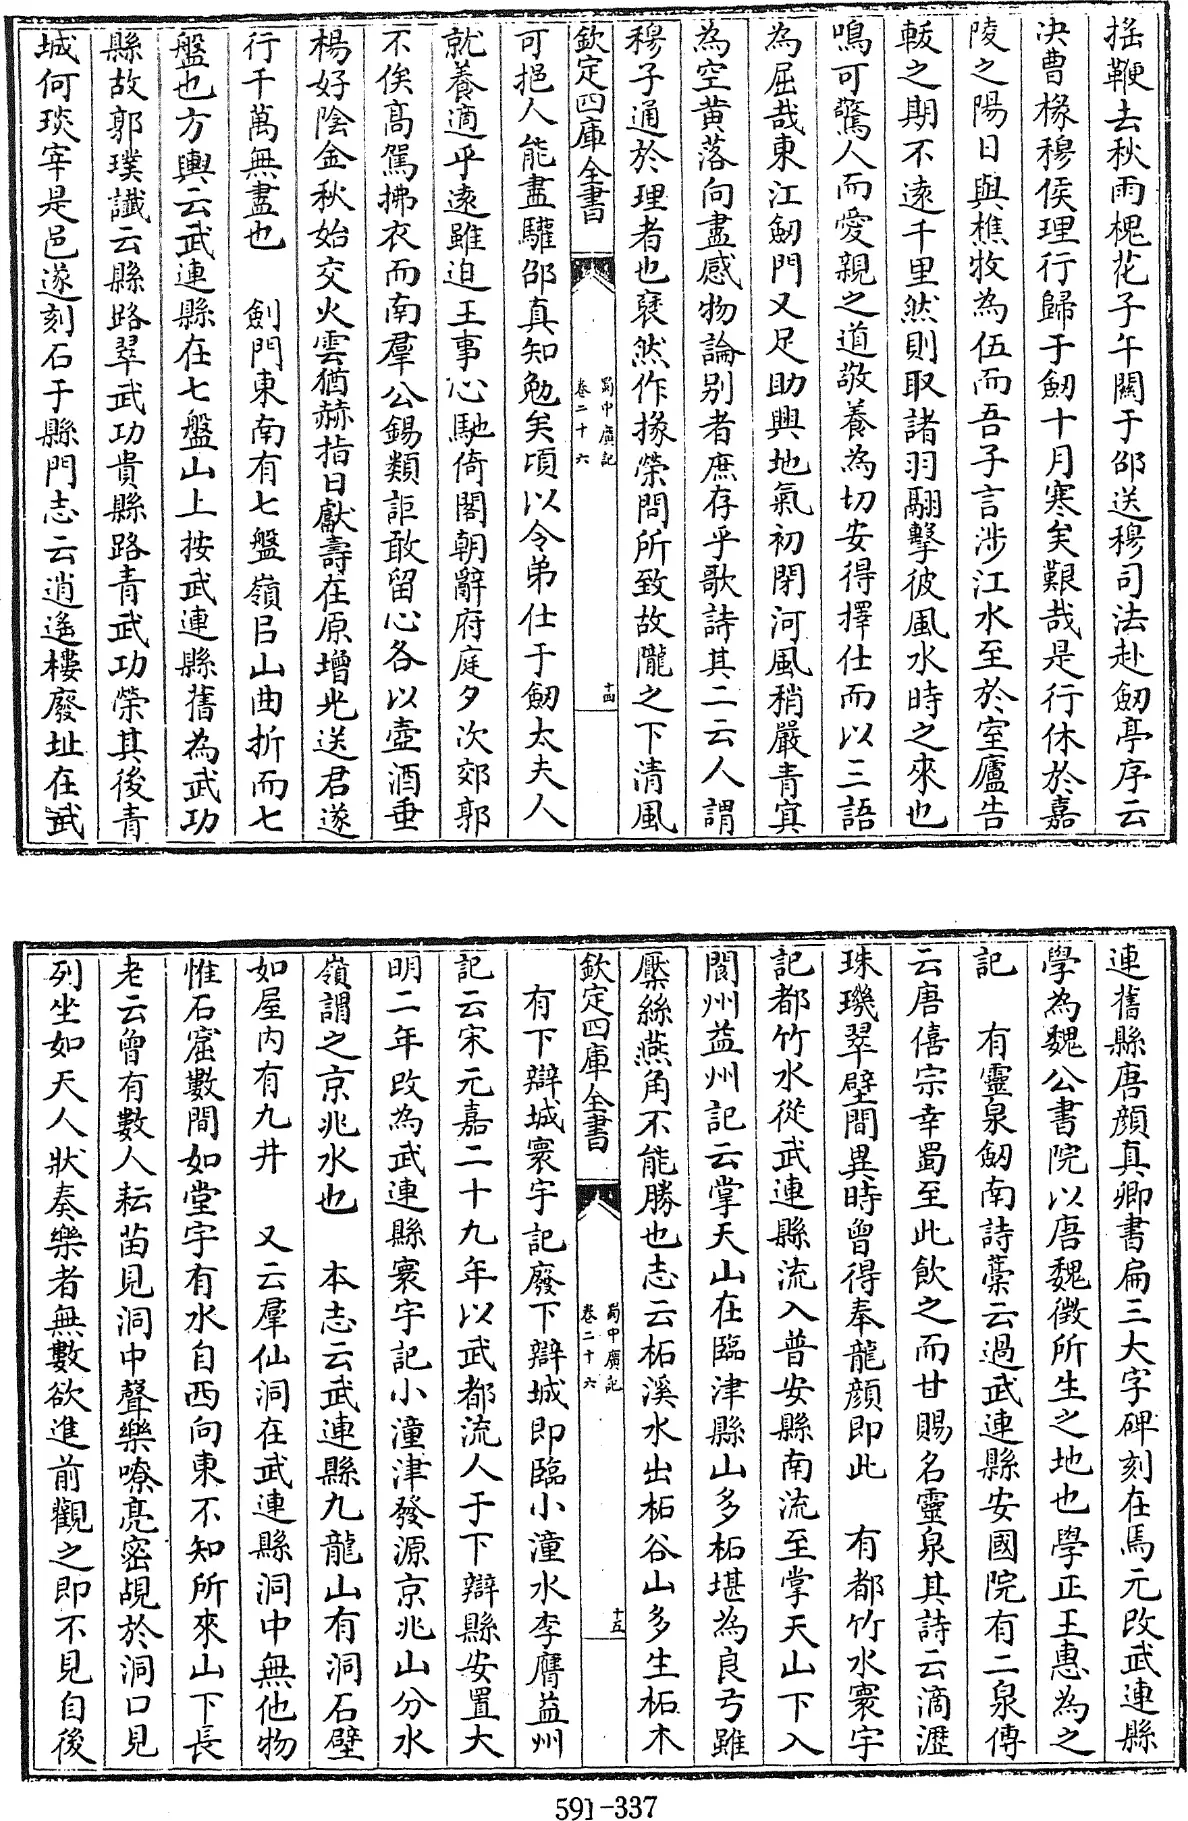 搖鞭去秋雨槐花子午關于邵送穆司法赴劒亭序云
决曹椽穆侯理行歸于劒十月寒矣艱哉是行休於嘉
陵之陽日與樵牧為伍而吾子言涉江水至於室廬告
載之期不遠千里然則取諸羽翮擊彼風水時之來也
鳴可驚人而愛親之道敬養為切安得擇仕而以三語
為屈哉東江劒門又足助興地氣初閉河風稍嚴青寘
為空黄落向盡感物論别者庶存乎歌詩其二云人謂
穆子通於理者也裦然作掾榮問所致故隴之下清風
欽定四庫全書
蜀中廣記
卷二十六
十四
可挹人能盡驩邵真知勉矣頃以令弟仕于劒太夫人
就養適乎遠雖迫王事心馳倚閣朝辭府庭夕次郊郭
不俟高駕拂衣而南羣公錫類詎敢留心各以壺酒垂
楊好陰金秋始交火雲猶赫指日獻壽在原增光送君遂
行千萬無盡也　劍門東南有七盤嶺曰山曲折而七
盤也方輿云武連縣在七盤山上按武連縣舊為武功
縣故郭璞讖云縣路翠武功貴縣路青武功榮其後青
城何琰宰是邑遂刻石于縣門志云逍遙樓廢址在武
連舊縣唐顔真卿書扁三大字碑刻在焉元改武連縣
學為魏公書院以唐魏徵所生之地也學正王惠為之
記　有靈泉劒南詩藳云過武連縣安國院有二泉傳
云唐僖宗幸蜀至此飲之而甘賜名靈泉其詩云滴瀝
珠璣翠壁間異時曾得奉龍顔即此　有都竹水寰宇
記都竹水從武連縣流入普安縣南流至掌天山下入
閬州益州記云掌天山在臨津縣山多柘堪為良弓雖
檿絲燕角不能勝也志云柘溪水出柘谷山多生柘木
欽定四庫全書
蜀中廣記
卷二十六
十五
有下辯城寰宇記廢下辯城即臨小潼水李膺益州
記云宋元嘉二十九年以武都流人于下辯縣安置大
明二年改為武連縣寰宇記小潼津發源京兆山分水
嶺謂之京兆水也　本志云武連縣九龍山有洞石壁
如屋内有九井　又云羣仙洞在武連縣洞中無他物
惟石窟數間如堂宇有水自西向東不知所來山下長
老云曾有數人耘苗見洞中聲樂嘹亮密覘於洞口見
列坐如天人狀奏樂者無數欲進前觀之即不見自後
591-337